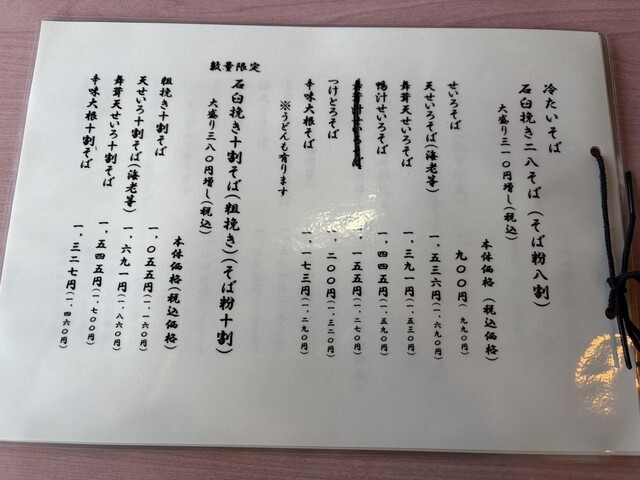 冷たいそば
石臼挽き二八そば(そば粉八割)
大盛り三一〇円増し(税込)
本体価格(税込価格)
せいろそば 九〇〇円(九九〇円)
天せいろそば(海老等) 一,五三六円(一,六九〇円)
舞茸天せいろそば 一,三九一円(一,五三〇円)
鴨汁せいろそば 一,四四五円(一,五九〇円)
一,一五五円(一,二七〇円)
つけとろそば 一,二〇〇円(一,三二〇円)
辛味大根そば 一,一七三円(一,二九〇円)
※うどんも有ります
数量限定
石臼挽き十割そば(粗挽き)(そば粉十割)
大盛り三八〇円増し(税込)
本体価格(税込価格)
粗挽き十割そば 一,〇五五円(一,一六〇円)
天せいろ十割そば(海老等) 一,六九一円(一,八六〇円)
舞茸天せいろ十割そば 一,五四五円(一,七〇〇円)
辛味大根十割そば 一,三二七円(一,四六〇円)